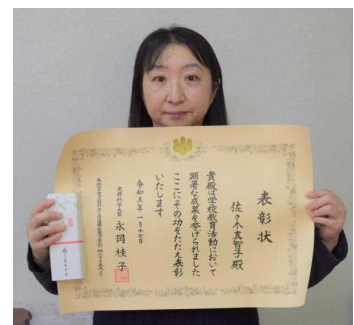 表彰状
佐々木真智子殿
貴殿は学校教育活動において
顕著な成果を挙げられました
ここにその功をたたえ表彰
いたします
令和五年一月十七日
文部科学大臣 永岡桂子